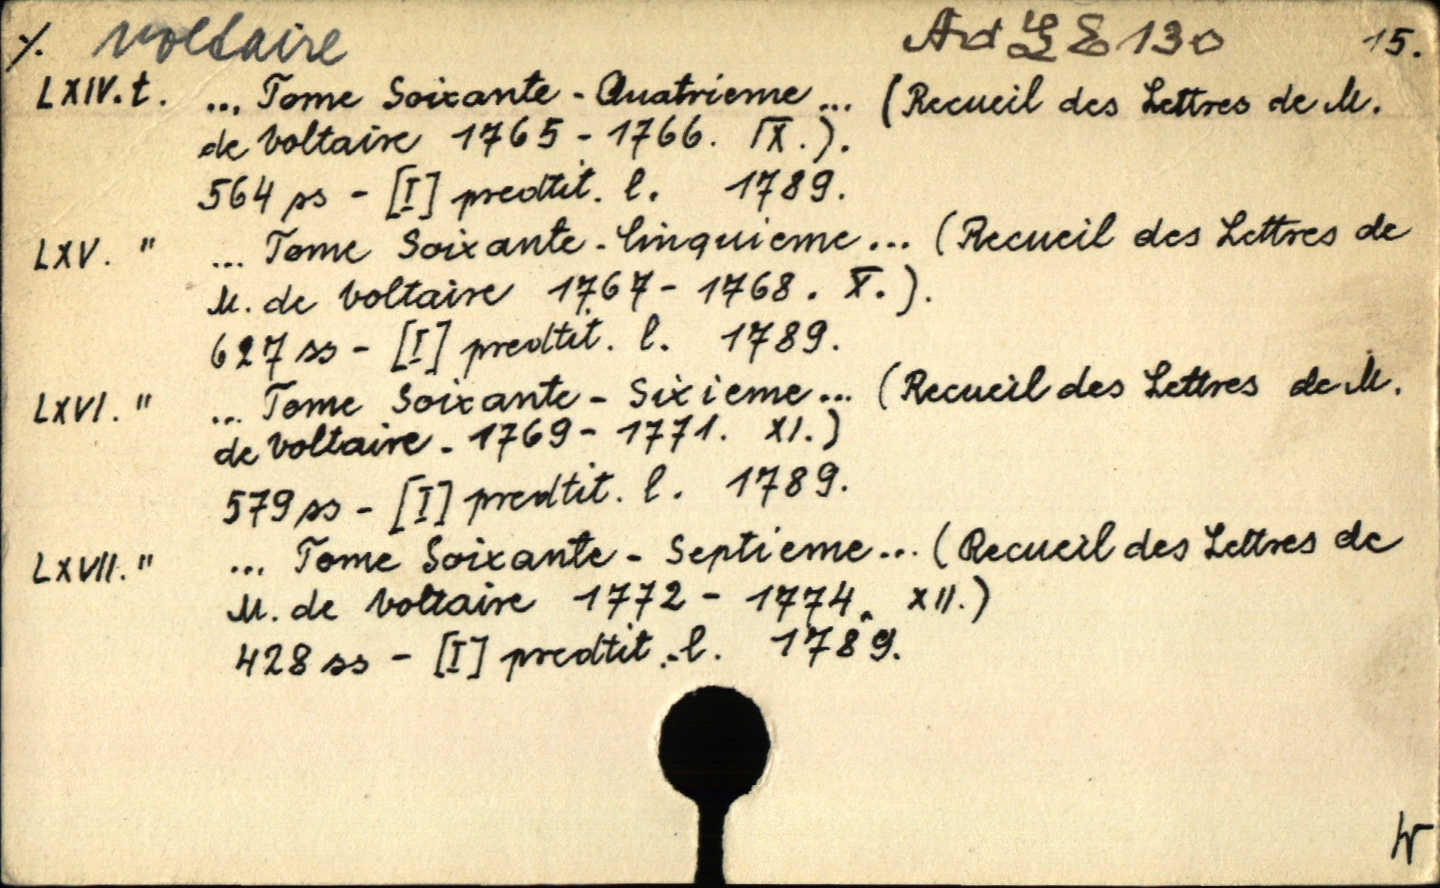 %. Voltaire Ad LE 130 15.
LXIV. t. ... Tome Soixante - Quatrieme ... (Recueil des Lettres de M.
de Voltaire 1765 - 1766. IX.).
564 ss - [I] predtit. l. 1789.
LXV. " ... Tome Soixante - Cinquieme ... (Recueil des Lettres de
M. de Voltaire 1767 - 1768. X.).
627 ss - [I] predtit. l. 1789.
LXVI. " ... Tome Soixante - Sixieme ... (Recueil des Lettres de M.
de Voltaire. 1769 - 1771. XI.)
579 ss - [I] predtit. l. 1789.
LXVII. " ... Tome Soixante - Septieme ... (Recueil des Lettres de
M. de Voltaire 1772 - 1774. XII.)
428 ss - [I] predtit. l. 1789.